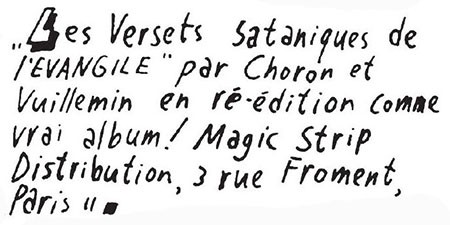 „Les Versets sataniques de
l'EVANGILE" par Choron et
Vuillemin en ré-édition comme
vrai album! Magic Strip
Distribution, 3 rue Froment,
Paris "■